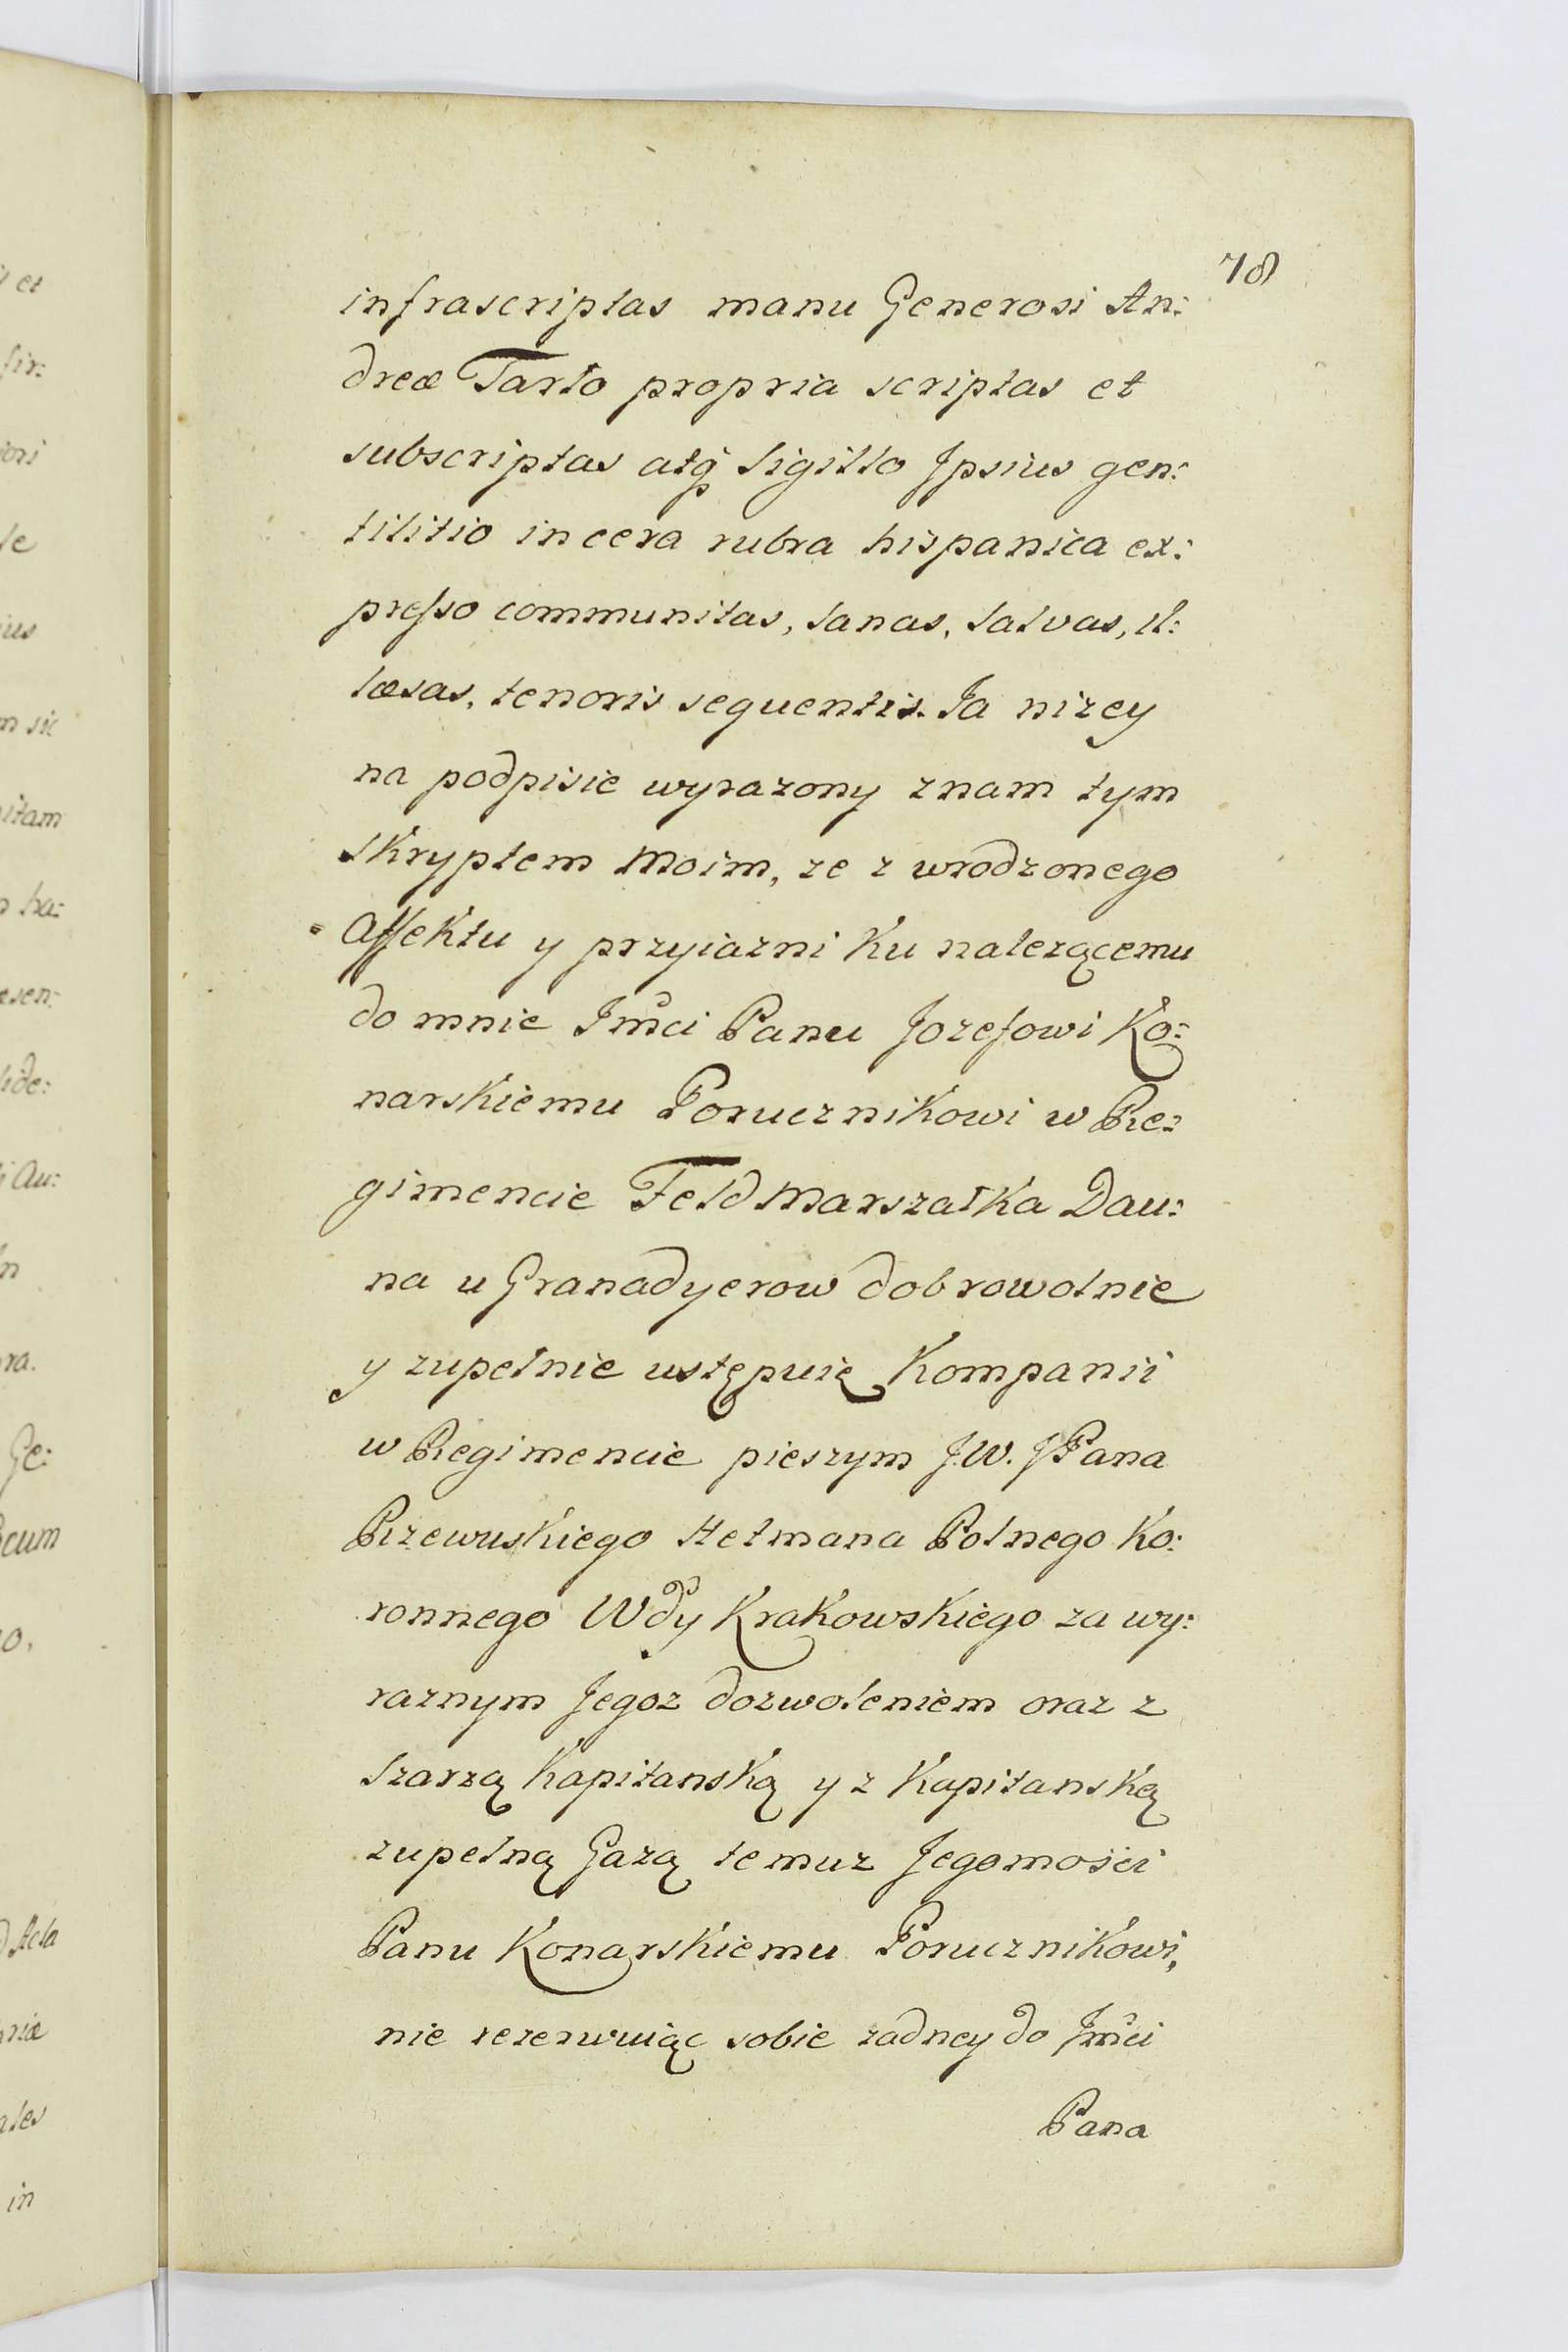 78
infrascriptas manu Generosi An:
dreæ Tarło propria scriptas et
subscriptas atq̃ Sigillo Jpsius gen:
tilitio in cera rubra hispanica ex:
presso communitas, sanas, salvas, il:
læsas, tenoris sequentis. Ja nizey
na podpisie wyrazony znam tym
Skryptem Moim, ze z wrodzonego
Affektu y przyiazni Ku nalezącemu
do mnie Jmci Panu Jozefowi Ko:
narskiemu Porucznikowi w Re:
gimencie Feld Marszałka Dau:
na u Granadyerow dobrowolnie
y zupełnie ustępuię Kompanii
w Regimencie pieszym J.W. JPana
Rzewuskiego Hetmana Polnego Ko:
ronnego Wdy Krakowskiego za wy:
raznym Jegoz dozwoleniem oraz z
Szarzą Kapitanską y z Kapitanską
zupełną Gazą temuz Jegomości
Panu Konarskiemu Porucznikowi,
nie rezerwuiąc sobie zadney do Jmci
Pana
et
sir:
iori
le
ius
m sic
itam
ha:
esen:
lide:
Au:
ra.
Ge:
cum
o,
Acta
riæ
ales
in